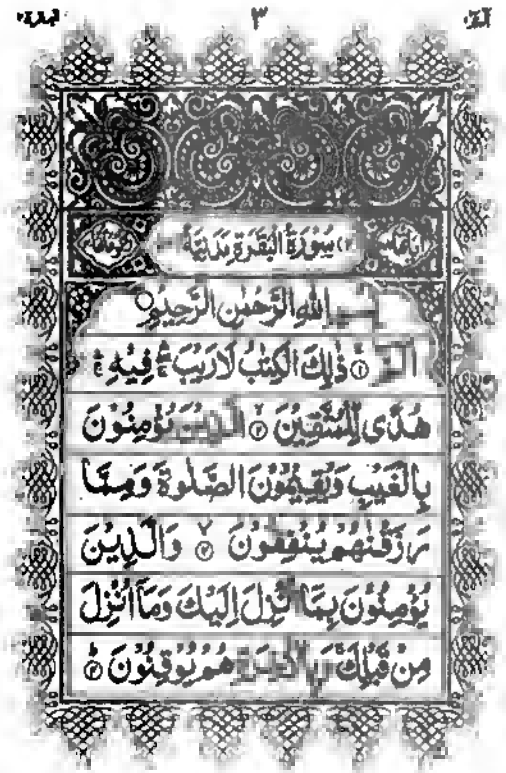 البقرة٢ ٣ الٓمّٓ ١
سُوْرَةُ الْبَقَرَةِ مَدَنِيَّةٌ
بِسْمِ اللّٰهِ الرَّحْمٰنِ الرَّحِيْمِ
الٓمّٓ ۚ﴿۱﴾ ذٰلِكَ الْكِتٰبُ لَا رَيْبَ ۛۚ فِيْهِ ۛۚ
هُدًى لِّلْمُتَّقِيْنَ ۙ﴿۲﴾ الَّذِيْنَ يُؤْمِنُوْنَ
بِالْغَيْبِ وَيُقِيْمُوْنَ الصَّلٰوةَ وَمِمَّا
رَزَقْنٰهُمْ يُنْفِقُوْنَ ۙ﴿۳﴾ وَالَّذِيْنَ
يُؤْمِنُوْنَ بِمَآ اُنْزِلَ اِلَيْكَ وَمَآ اُنْزِلَ
مِنْ قَبْلِكَ ۚ وَبِالْاٰخِرَةِ هُمْ يُوْقِنُوْنَ ؕ﴿۴﴾